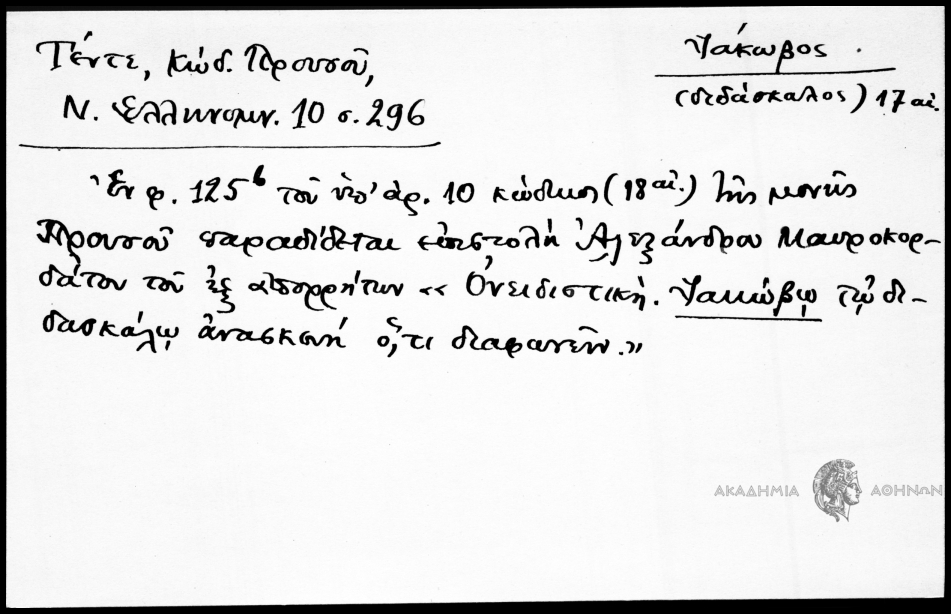 Τέντε, Κώδ. Προυσοῦ,
Ν. Ἑλληνομν. 10 σ. 296
Ἰάκωβος
(διδάσκαλος) 17 αἰ.
Ἐν φ. 125β τοῦ ὑπ' ἀρ. 10 κώδικος (18 αἰ.) τῆς μονῆς
Προυσοῦ παραδίδεται ἐπιστολὴ Ἀλεξάνδρου Μαυροκορ-
δάτου τοῦ ἐξ ἀπορρήτων « Ὀνειδιστική. Ἰακώβῳ τῷ δι-
δασκάλῳ ὅ,τι
ΑΚΑΔΗΜΙΑ ΑΘΗΝΩΝ